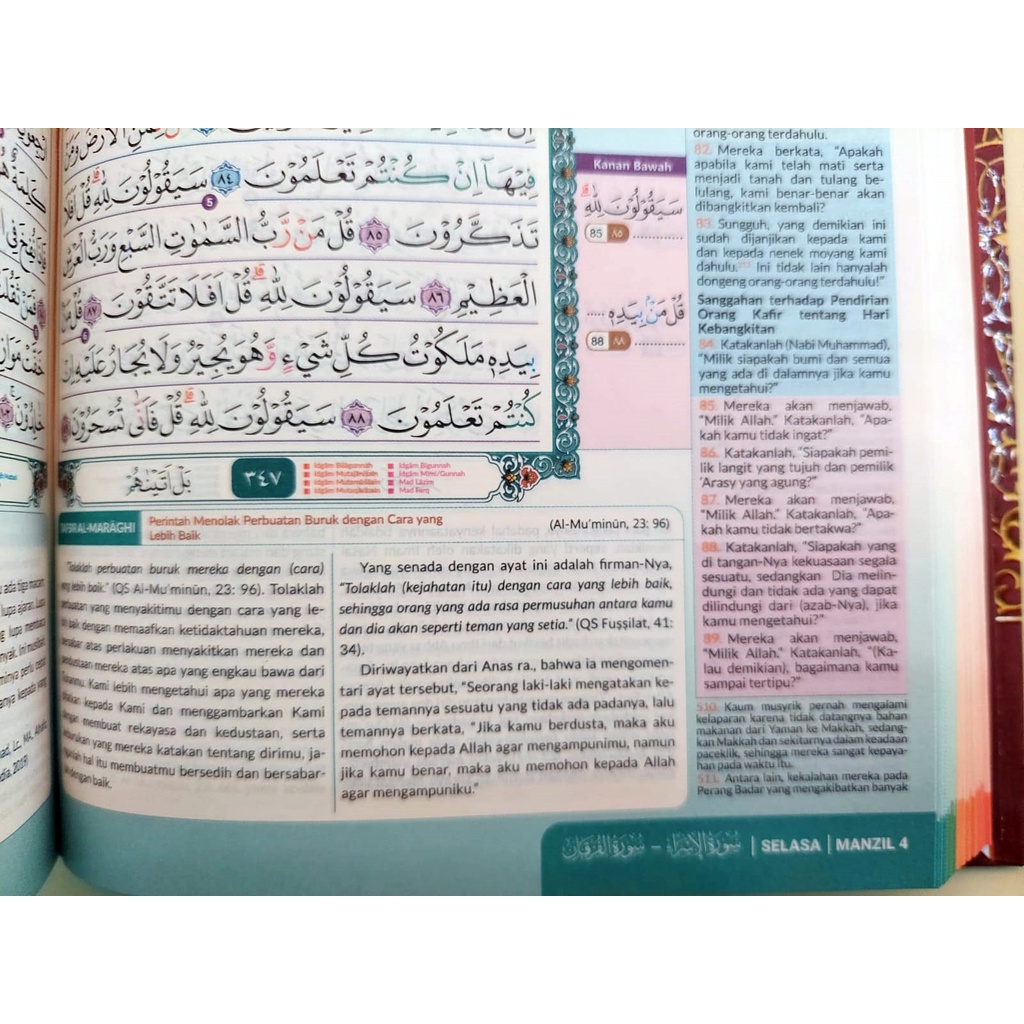 فِيْهَآ اِنْ كُنْتُمْ تَعْلَمُوْنَ ٨٤ سَيَقُوْلُوْنَ لِلّٰهِ ۗقُلْ اَفَلَا
تَذَكَّرُوْنَ ٨٥ قُلْ مَنْ رَّبُّ السَّمٰوٰتِ السَّبْعِ وَرَبُّ الْعَرْشِ
الْعَظِيْمِ ٨٦ سَيَقُوْلُوْنَ لِلّٰهِ ۗقُلْ اَفَلَا تَتَّقُوْنَ ٨٧ قُلْ مَنْۢ
بِيَدِهٖ مَلَكُوْتُ كُلِّ شَيْءٍ وَّهُوَ يُجِيْرُ وَلَا يُجَارُ عَلَيْهِ اِنْ
كُنْتُمْ تَعْلَمُوْنَ ٨٨ سَيَقُوْلُوْنَ لِلّٰهِ ۗقُلْ فَاَنّٰى تُسْحَرُوْنَ
بَلْ اَتَيْنٰهُمْ
٣٤٧
Idgām Bilāgunnah
Idgām Mutajānisain
Idgām Mutamāṡilain
Idgām Mutaqāribain
Idgām Bigunnah
Idgām Mimi/Gunnah
Mad Lāzim
Mad Farq
Kanan Bawah
سَيَقُوْلُوْنَ لِلّٰهِ ۗ
85 ٨٥ ............
قُلْ مَنْۢ بِيَدِهٖ .....
88 ٨٨ ............
orang-orang terdahulu.
82. Mereka berkata, “Apakah
apabila kami telah mati serta
menjadi tanah dan tulang be-
lulang, kami benar-benar akan
dibangkitkan kembali?
83. Sungguh, yang demikian ini
sudah dijanjikan kepada kami
dan kepada nenek moyang kami
dahulu. Ini tidak lain hanyalah
dongeng orang-orang terdahulu!”
Sanggahan terhadap Pendirian
Orang Kafir tentang Hari
Kebangkitan
84. Katakanlah (Nabi Muhammad),
“Milik siapakah bumi dan semua
yang ada di dalamnya jika kamu
mengetahui?”
85. Mereka akan menjawab,
“Milik Allah.” Katakanlah, “Apa-
kah kamu tidak ingat?”
86. Katakanlah, “Siapakah pemi-
lik langit yang tujuh dan pemilik
‘Arasy yang agung?”
87. Mereka akan menjawab,
“Milik Allah.” Katakanlah, “Apa-
kah kamu tidak bertakwa?”
88. Katakanlah, “Siapakah yang
di tangan-Nya kekuasaan segala
sesuatu, sedangkan Dia melin-
dungi dan tidak ada yang dapat
dilindungi dari (azab-Nya), jika
kamu mengetahui?”
89. Mereka akan menjawab,
“Milik Allah.” Katakanlah, “(Ka-
lau demikian), bagaimana kamu
sampai tertipu?”
510. Kaum musyrik pernah mengalami
kelaparan karena tidak datangnya bahan
makanan dari Yaman ke Makkah, sedang-
kan Makkah dan sekitarnya dalam keadaan
paceklik, sehingga mereka sangat kepaya-
han pada waktu itu.
511. Antara lain, kekalahan mereka pada
Perang Badar yang mengakibatkan banyak
TAFSIR AL-MARĀGHI
Perintah Menolak Perbuatan Buruk dengan Cara yang
Lebih Baik
(Al-Mu’minūn, 23: 96)
“Tolaklah perbuatan buruk mereka dengan (cara)
yang lebih baik.” (QS Al-Mu’minūn, 23: 96). Tolaklah
perbuatan yang menyakitimu dengan cara yang le-
bih baik dengan memaafkan ketidaktahuan mereka,
bersabar atas perlakuan menyakitkan mereka dan
pendustaan mereka atas apa yang engkau bawa dari
Tuhanmu. Kami lebih mengetahui apa yang mereka
katakan kepada Kami dan menggambarkan Kami
dengan membuat rekayasa dan kedustaan, serta
keburukan yang mereka katakan tentang dirimu, ja-
nganlah hal itu membuatmu bersedih dan bersabar-
lah dengan baik.
Yang senada dengan ayat ini adalah firman-Nya,
“Tolaklah (kejahatan itu) dengan cara yang lebih baik,
sehingga orang yang ada rasa permusuhan antara kamu
dan dia akan seperti teman yang setia.” (QS Fuṣṣilat, 41:
34).
Diriwayatkan dari Anas ra., bahwa ia mengomen-
tari ayat tersebut, “Seorang laki-laki mengatakan ke-
pada temannya sesuatu yang tidak ada padanya, lalu
temannya berkata, “Jika kamu berdusta, maka aku
memohon kepada Allah agar mengampunimu, namun
jika kamu benar, maka aku memohon kepada Allah
agar mengampuniku.”
سُوْرَةُ الْاِسْرَاءِ – سُوْرَةُ الْفُرْقَانِ | SELASA | MANZIL 4